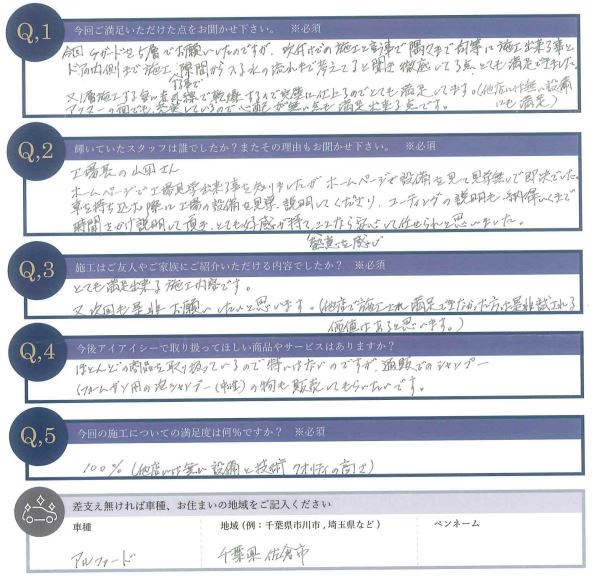 Q,1 今回ご満足いただけた点をお聞かせ下さい。 ※必須
今回 Gガードを5層でお願いしたのですが、吹付けでの施工と言う事で隅々まで均等に施工出来る事と
ドア内側まで施工、隙間から入る水の流れまで考えてると聞き徹底している点、とても満足出来ました。
又1層施工する毎に赤外線で乾燥するので完璧に仕上るのでとても満足してます。(他店には無い設備
アフターの面でも充実しているので心配が無い点も満足出来る点です。 にも満足)
Q,2 輝いていたスタッフは誰でしたか?またその理由もお聞かせ下さい。 ※必須
工場長の山田さん
ホームページで工場見学出来る事を知りましたが ホームページで設備を見て見学無しで即決でした。
車を持ち込んだ際に工場の設備を見学、説明してくださり、コーティングの説明も、納得いくまで
時間をかけ説明して頂き、とても好感が持て、ここなら安心して任せられると思いました。
熱意を感じ
Q,3 施工はご友人やご家族にご紹介いただける内容でしたか? ※必須
とても満足出来る施工内容です。
又 次回も是非 お願いしたいと思います。(他店で施工され満足できなかった方は是非試される
価値はあると思います。)
Q,4 今後アイアイシーで取り扱ってほしい商品やサービスはありますか?
ほとんどの商品を取り扱っているので特にはないのですが、通販でのシャンプー
(フォームガン用の泡シャンプー(中性)の物も販売してもらいたいです。
Q,5 今回の施工についての満足度は何%ですか? ※必須
100% (他店には無い設備と技術 クオリティの高さ)
差支え無ければ車種、お住まいの地域をご記入ください
車種 地域 (例:千葉県市川市,埼玉県など) ペンネーム
アルファード 千葉県 佐倉市